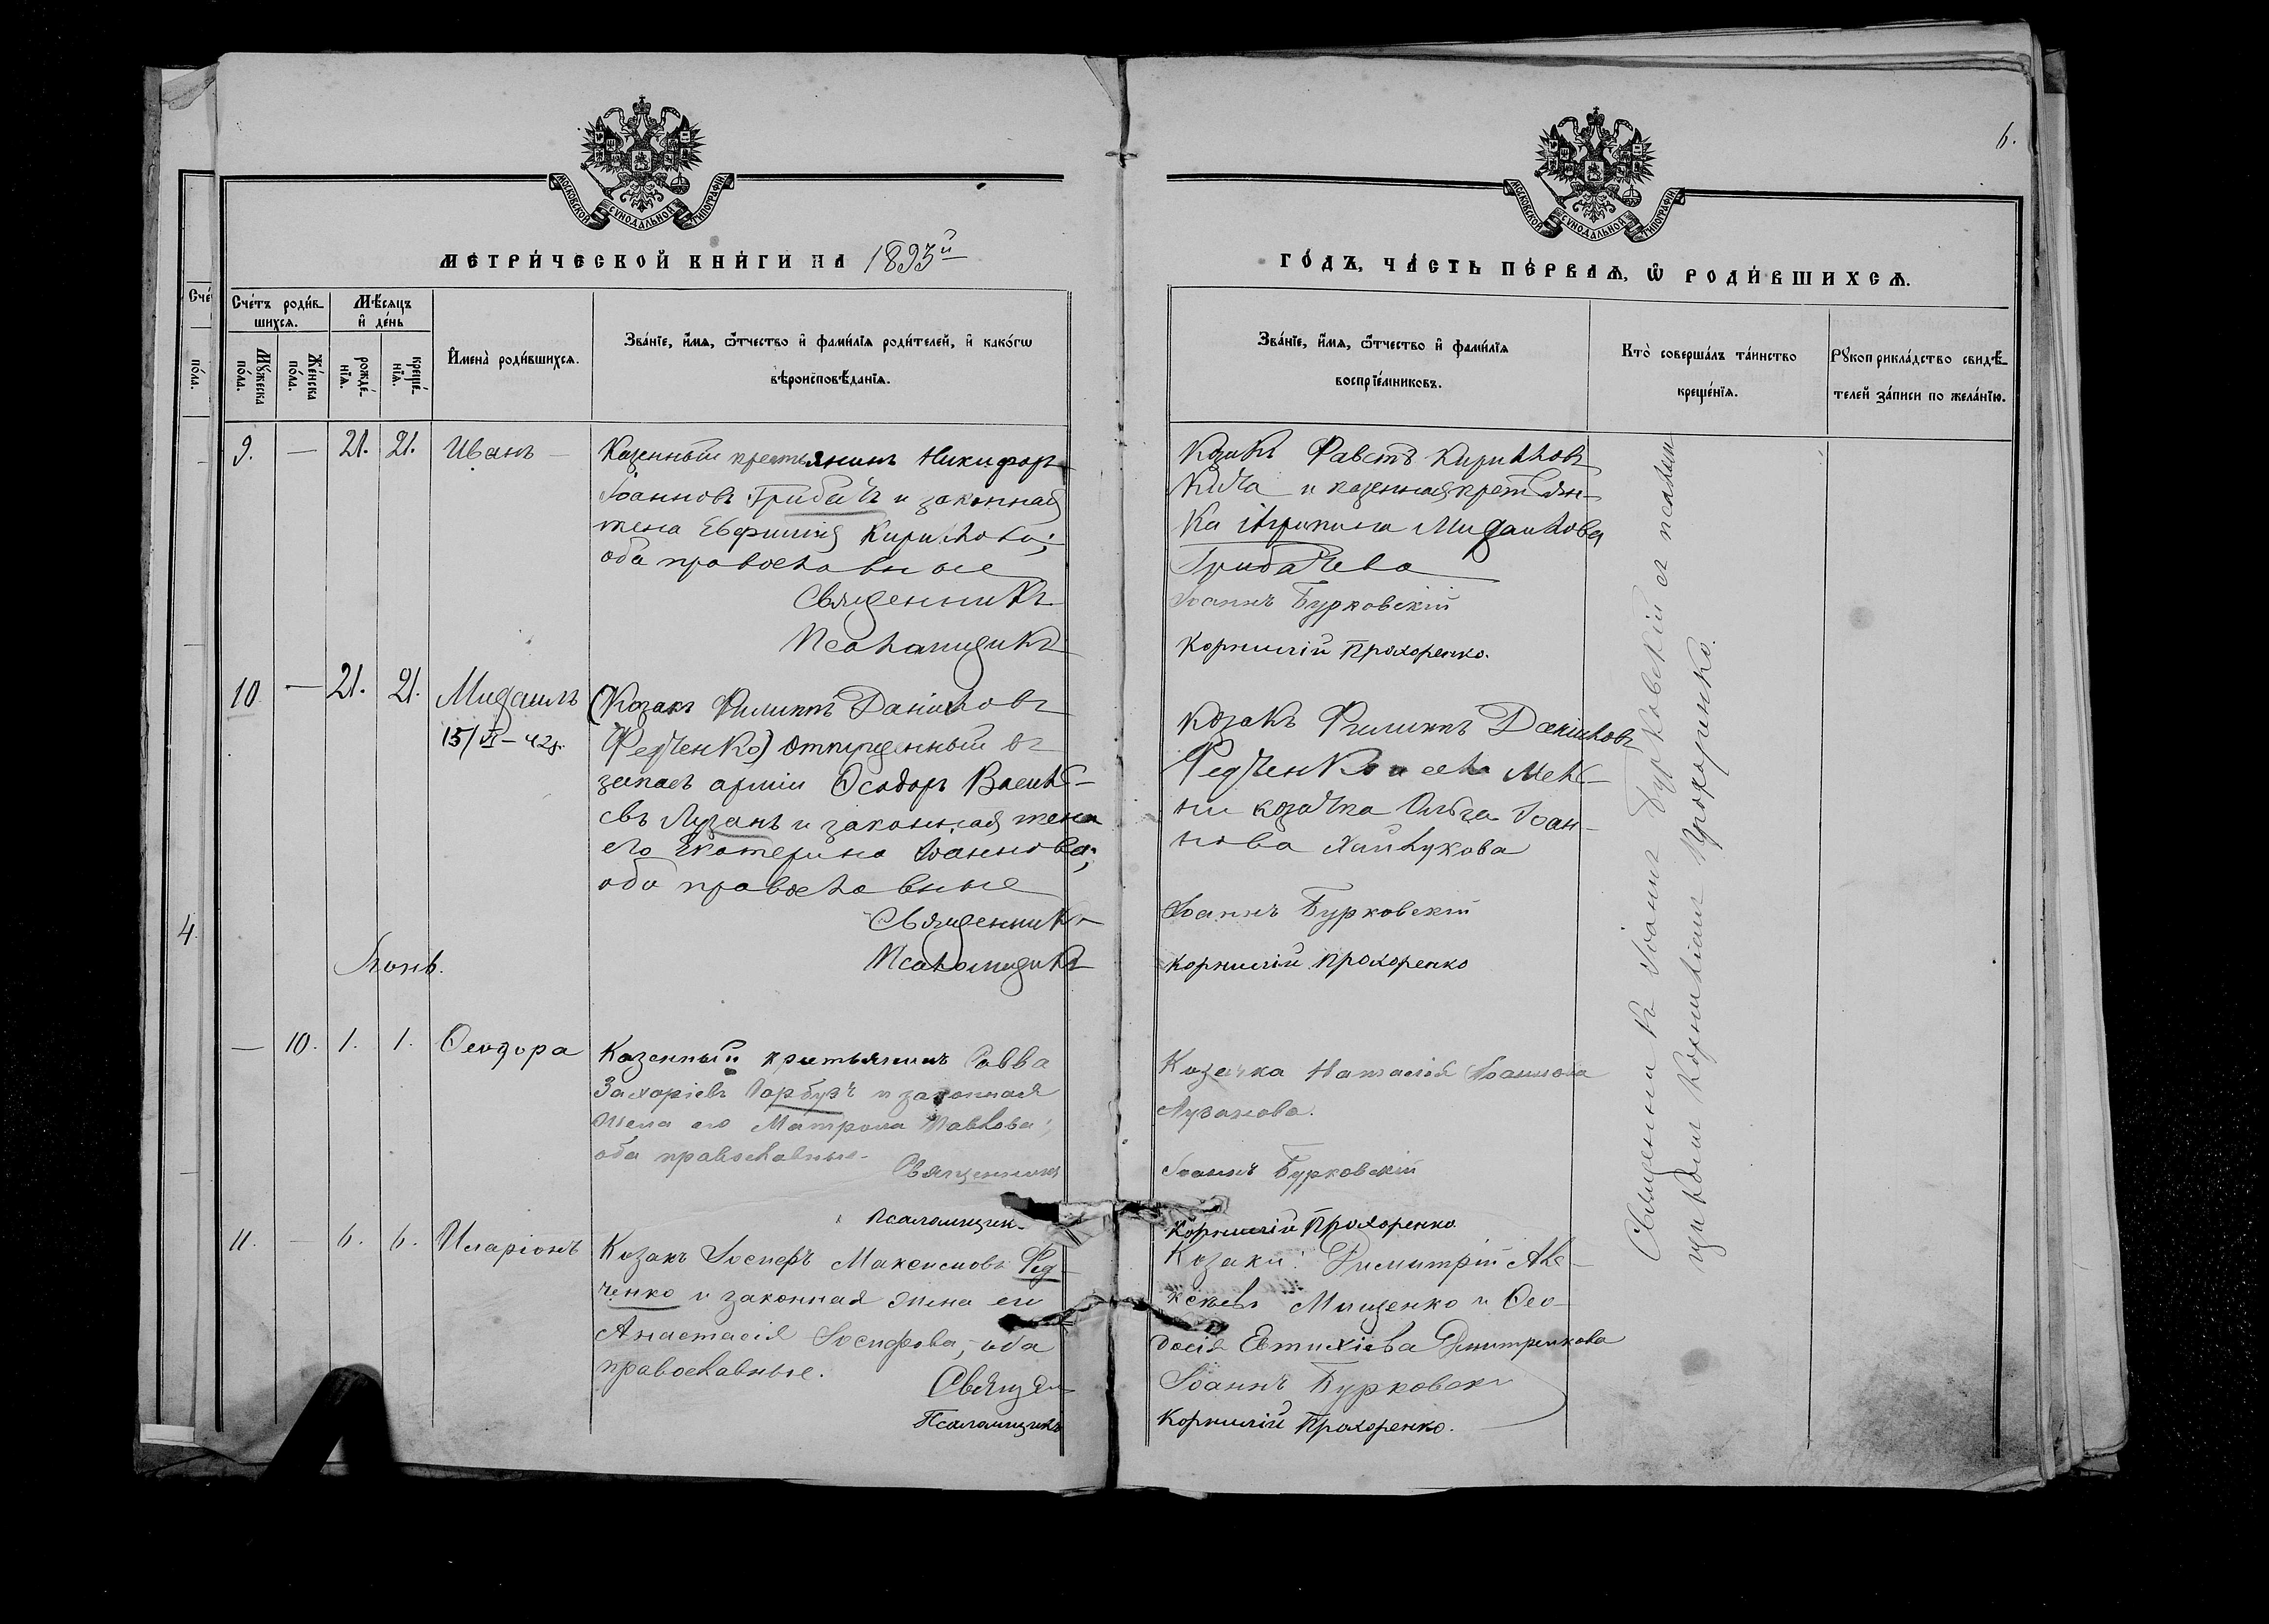 6.
МОСКОВСКОЙ СѴНОДАЛЬНОЙ ТИПОГРАФІИ
МОСКОВСКОЙ СѴНОДАЛЬНОЙ ТИПОГРАФІИ
МЕТРИ́ЧЕСКОЙ КНИ́ГИ НА 1893й
ГО́ДЪ, ЧА́СТЬ ПЕ́РВАѦ, Ѽ РОДИ́ВШИХСѦ.
Сче́тъ роди́в-
шихся.
Мѣ́сяцъ
и де́нь
Мꙋ́жеска
по́ла.
Же́нска
по́ла.
рожде́-
нїя.
креще́-
нїя.
И҆мена̀ роди́вшихся.
Зва́нїе, и҆́мя, ѻ҆́тчество и҆ фами́лїя роди́телей, и҆ како́гѡ
вѣроисповѣ́данїя.
Зва́нїе, и҆́мя, ѻ҆́тчество и҆ фами́лїя
воспрїе́мниковъ.
Кто̀ соверша́лъ та́инство
креще́нїя.
Рꙋкоприкла́дство свидѣ́-
телей за́писи по жела́нїю.
9. — 21. 21. Иванъ —
Казенный крестьянинъ Никифоръ
Іоанновъ Грибачъ и законная
жена Евфимія Кирилова;
оба православные
Священникъ
Псаломщикъ
Козакъ Фавстъ Кирилловъ
Кича и казенная крестьян-
ка Агрипина Михаилова
Грибачева
Іоаннъ Бурковскій
Корнилій Прохоренко.
10 — 21. 21. Михаилъ
15/VI – 42г.
(Козакъ Филиппъ Даниловъ
Федченко) отпущенный въ
запасъ арміи Ѳеодоръ Василь-
евъ Лузанъ и законная жена
его Екатерина Іоаннова;
оба православные
Священникъ
Псаломщикъ
Козакъ Филиппъ Даніиловъ
Федченко и
козачка Ольга Іоан-
нова
Іоаннъ Бурковскій
Корнилій Прохоренко
4.
Іюнь.
— 10. 1. 1. Ѳеодора
Казенный крестьянинъ Савва
Захаріевъ Гарбузъ и законная
жена его Матрона Павлова;
оба православные.
Священникъ
Псаломщик.
Козачка Наталія Іоаннова
Лузанова.
Іоаннъ Бурковскій
Корнилій Прохоренко
11. — 6. 6. Иларіонъ
Козакъ Іосифъ Максимовъ Фед-
ченко и законная жена его
Анастасія Іосифова, оба
православные.
Священ
Псаломщикъ
Козаки: Димитрій Але-
ксѣевъ Мищенко и Ѳео-
досія Евтихіева Дмитренкова
Іоаннъ Бурковск
Корнилій Прохоренко.
Священникъ Іоаннъ Бурковскій съ псалом-
щикомъ Корниліемъ Прохоренко.